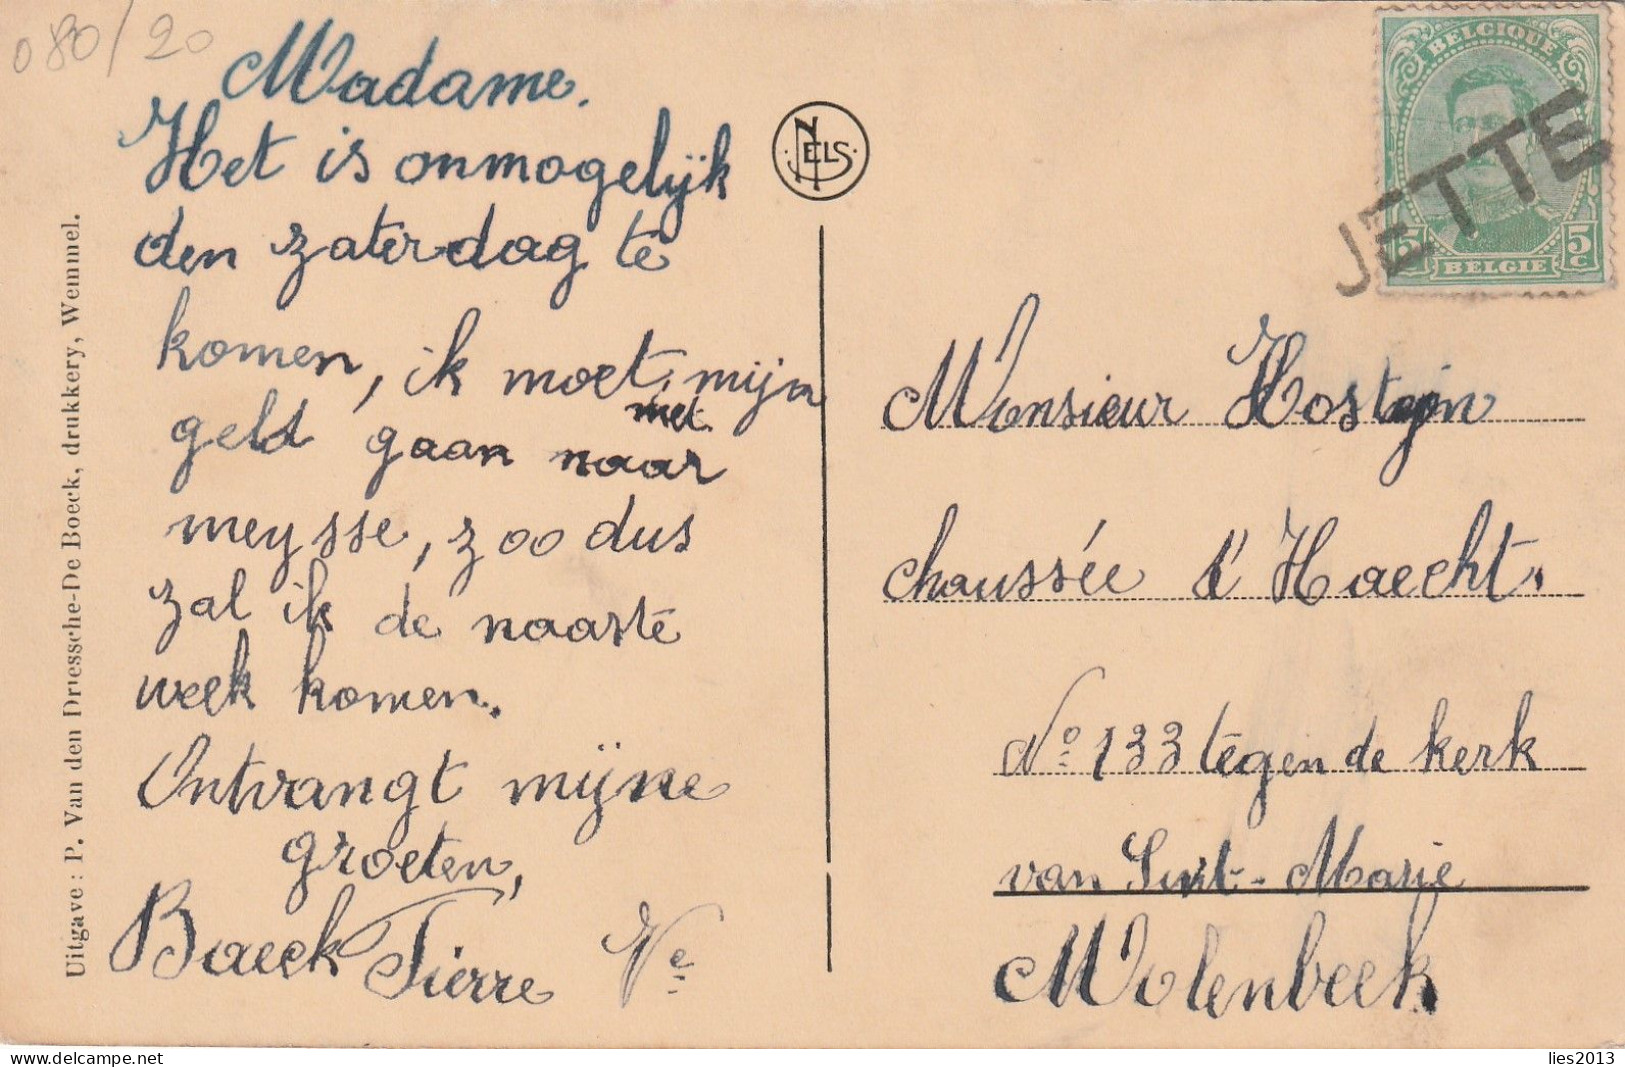 080/20
Madame.
Het is onmogelijk
den zaterdag te
komen, ik moet, mijn
met
geld gaan naar
meysse, zoo dus
zal ik de naaste
week komen.
Ontvangt mijne
groeten,
Baeck Pierre Ve
Uitgave : P. Van den Driessche-De Boeck, drukkery, Wemmel.
NELS
BELGIQUE
5 C
BELGIE
JETTE
Monsieur Hosteyn
chaussée d'Haecht.
No 133 tegen de kerk
van Sint-Marie
Molenbeek
lies2013